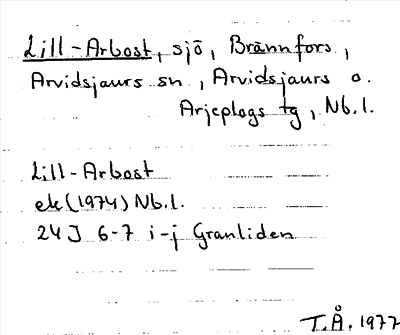 Lill-Arbost, sjö, Brännfors,
Arvidsjaurs sn, Arvidsjaurs o.
Arjeplogs tg, Nb.l.
Lill-Arbost
ek (1974) Nb.l.
24J 6-7 i-j Granliden
T.Å. 1977